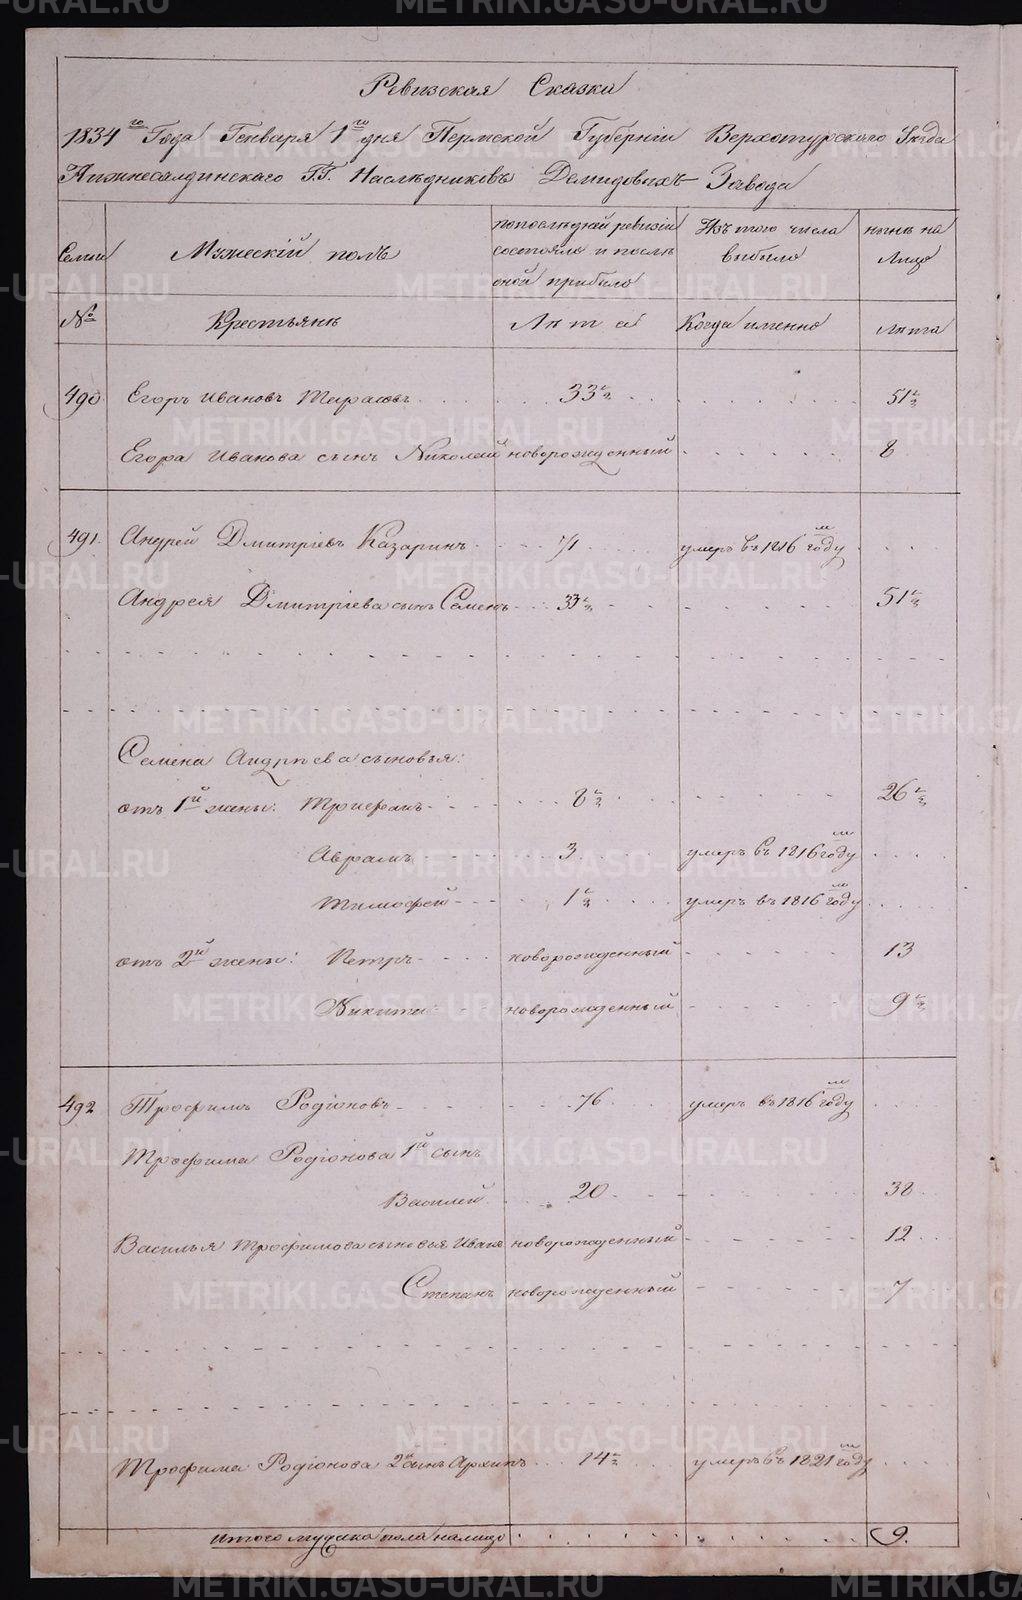 Ревизская Сказка
1834го Года Генваря 1го дня Пермской Губерніи Верхотурскаго Уѣзда
Нижнесалдинскаго Г.Г. Наслѣдниковъ Демидовыхъ Завода
Семьи
Мужескій полъ
попослѣдней ревизіи состояло и послѣ оной прибыло
Изъ того числа выбыло
нынѣ на лицо
№
Крестьянъ
Лѣта
Когда именно
лѣта
490. Егоръ Ивановъ 33 1/2 51 1/2
Егора Иванова сынъ Николай новорожденный 8
491. Андрей Дмитріевъ Казаринъ 71 умеръ въ 1816м году
Андрея Дмитріева сынъ Семенъ 33 1/2 51 1/2
Семена Андрѣева сыновья:
отъ 1й жены: Трифанъ 8 1/2 26 1/2
Аврамъ 3 умеръ въ 1816м году
Тимофей 1 1/2 умеръ въ 1816м году
отъ 2й жены: Петръ новорожденный 13
Никита новорожденный 9 1/2
492 Трофимъ Родіоновъ 76 умеръ въ 1816м году
Трофима Родіонова 1й сынъ
Василей 20 38
Василья Трофимова сыновья Иванъ новорожденный 12
Степанъ новорожденный 7
Трофима Родіонова 2й сынъ Архипъ 14 1/2 умеръ въ 1821м году
итого мужска пола налицо 9.
METRIKI.GASO-URAL.RU